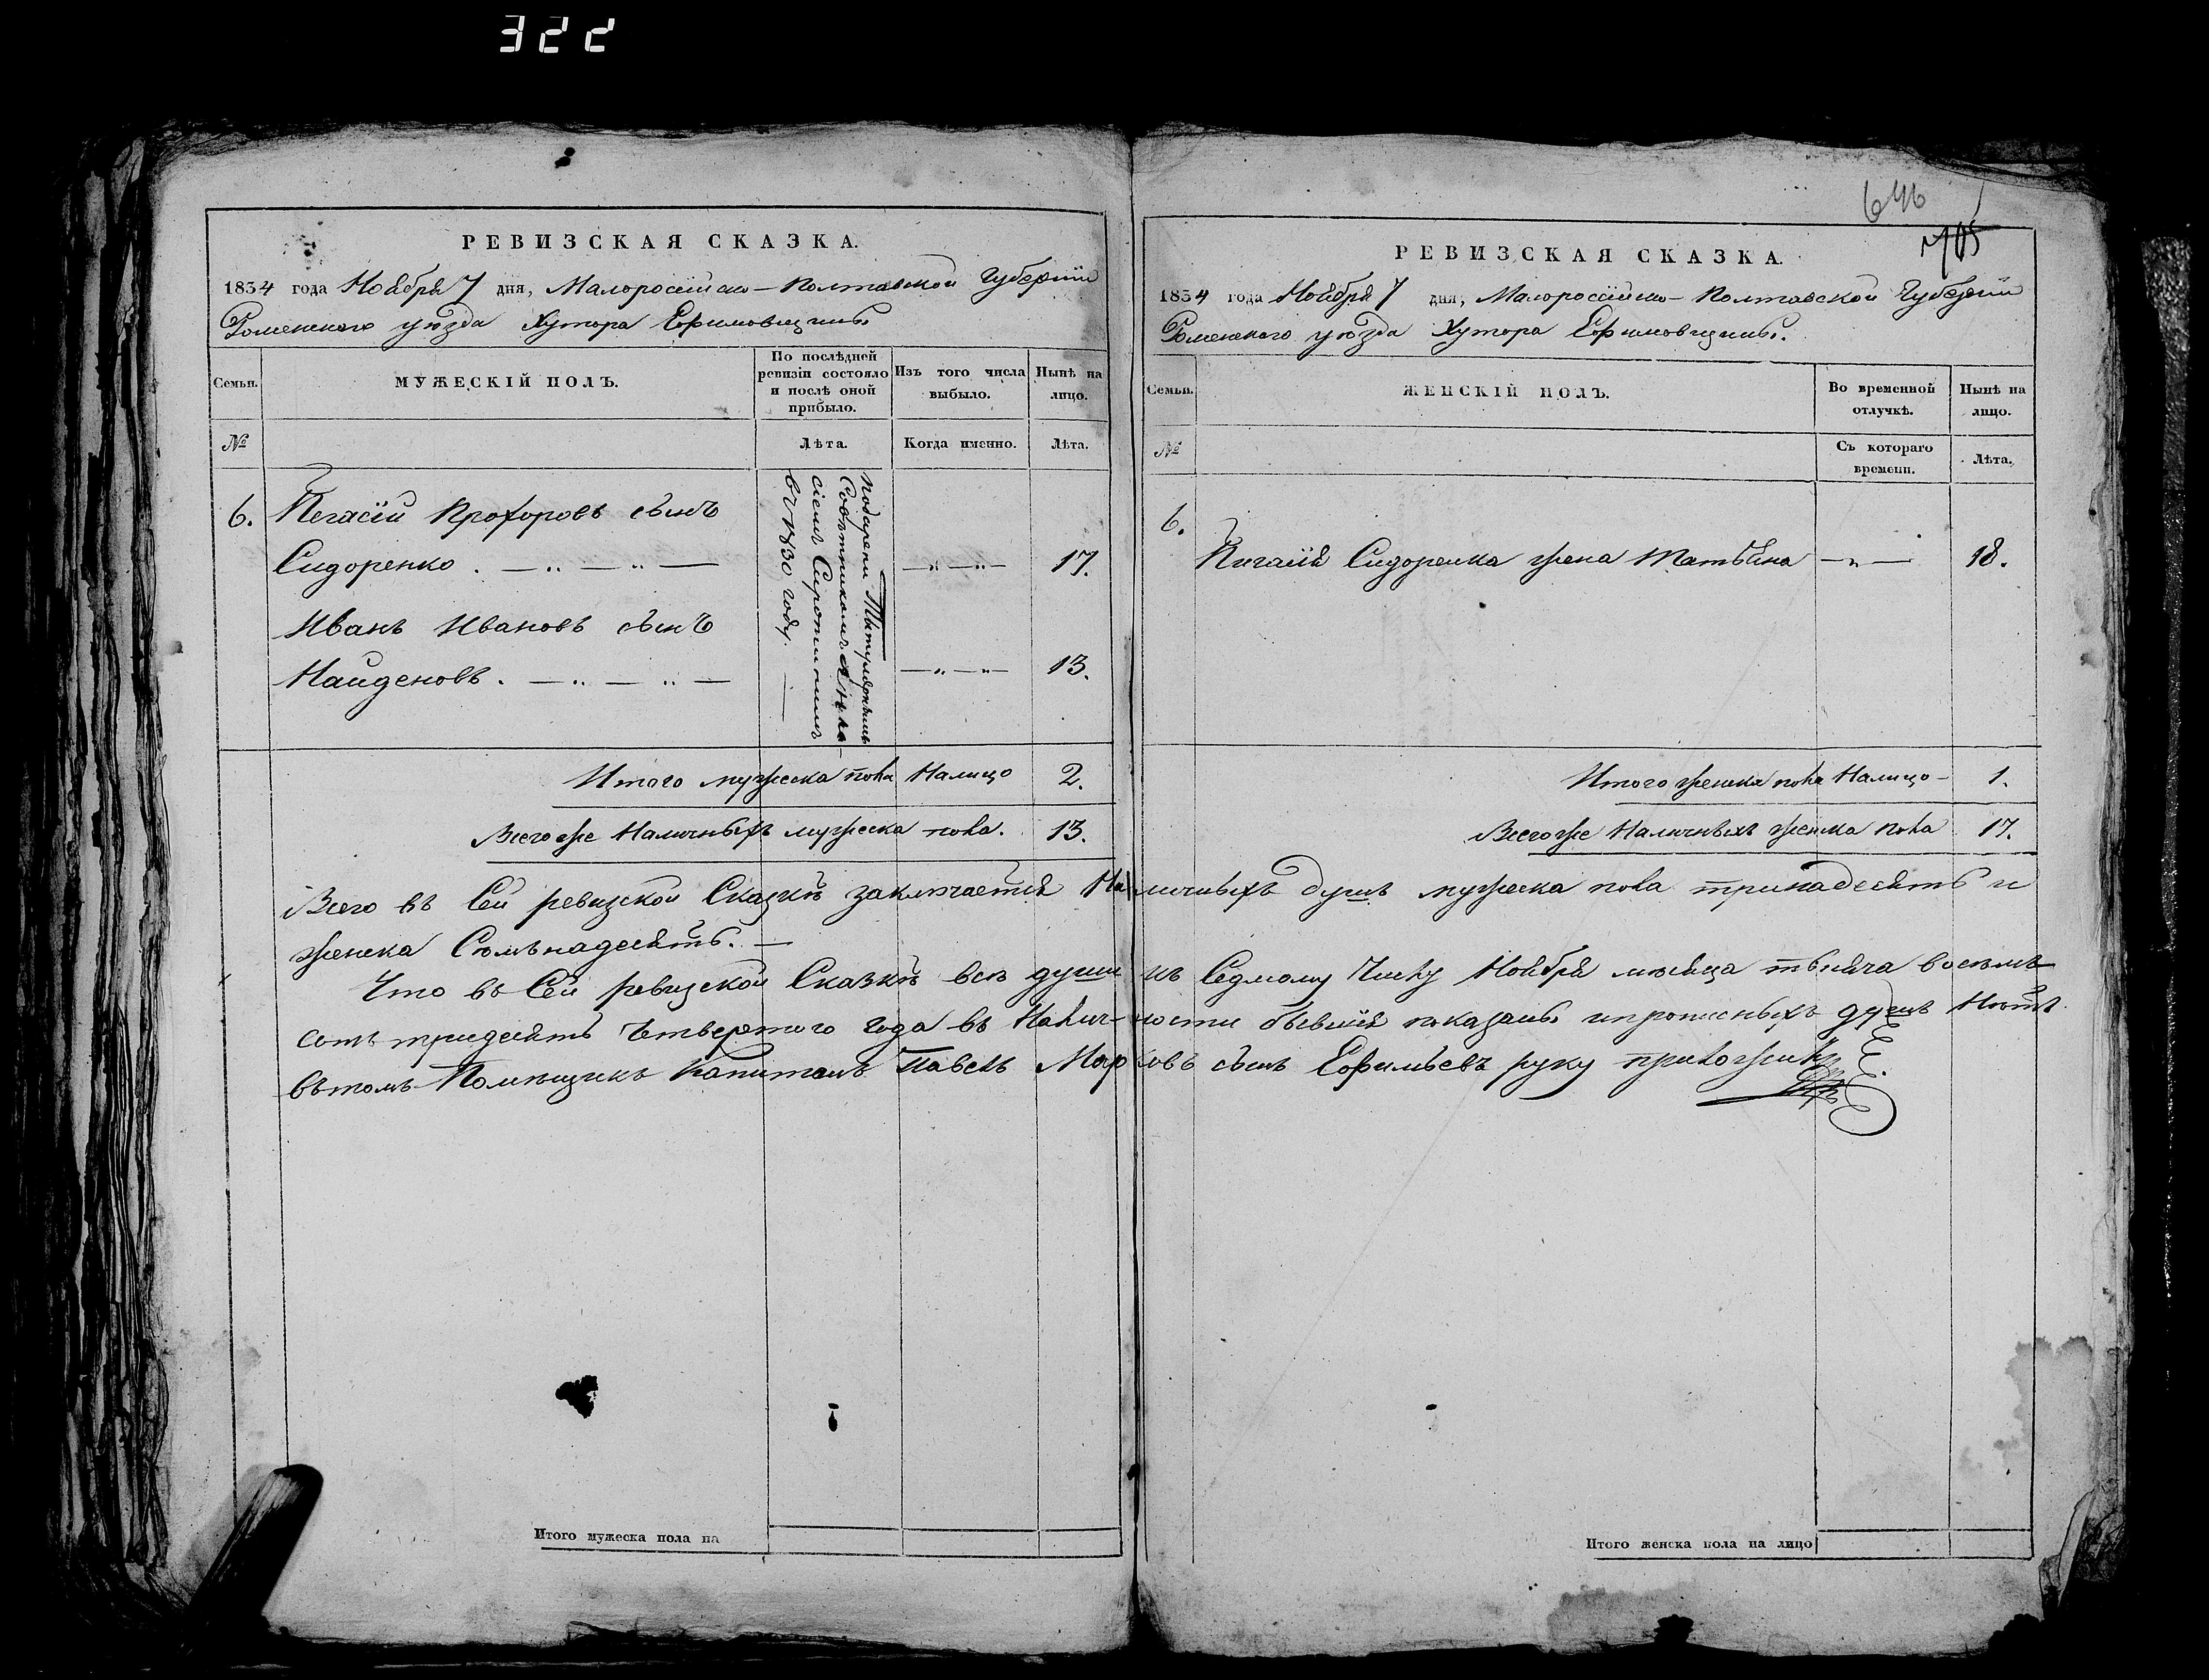 322
РЕВИЗСКАЯ СКАЗКА.
1834 года Ноября 7 дня, Малоросійско-Полтавской Губерніи
Роменскаго уѣзда Хутора Ефимовщины.
Семьи.
МУЖЕСКІЙ ПОЛЪ.
По послѣдней ревизіи состояло и послѣ оной прибыло.
Изъ того числа выбыло.
Нынѣ на лицо.
№
Лѣта.
Когда именно.
Лѣта.
6. Пегасій Прохоровъ сынъ
Сидоренко . — „ — „ — — „ — „ — 17.
Иванъ Ивановъ сынъ
Найденовъ . — „ — „ — — „ — „ — 13.
подарены Титулярнымъ
Совѣтникомъ
Сиротинимъ
въ 1830 году. —
Итого мужеска пола Налицо 2.
Всего же Наличныхъ мужеска пола. 13.
РЕВИЗСКАЯ СКАЗКА.
646
705
1834 года Ноября 7 дня, Малоросійско-Полтавской Губерніи
Роменскаго уѣзда Хутора Ефимовщины.
Семьи.
ЖЕНСКІЙ ПОЛЪ.
Во временной отлучкѣ.
Нынѣ на лицо.
№
Съ котораго времени.
Лѣта.
6.
Пигасія Сидоренка жена Татьяна — „ — 18.
Итого женска пола Налицо - 1.
Всего же Наличныхъ женска пола 17.
Всего въ Сей ревизской Сказкѣ заключается Наличныхъ душъ мужеска пола тринадесять и
женска Семьнадесять. —
Что въ Сей ревизской Сказкѣ всѣ души къ Седмому Числу Ноября мѣсяца тысяча восемь
сотъ тридесять Четвертого года въ Налич-ности бывшія показаны и прописныхъ душъ Нѣтъ
въ томъ Помѣщикъ Капитанъ Павелъ Марковъ сынъ Ефимьевъ руку приложилъ
Итого мужеска пола на
Итого женска пола на лицо